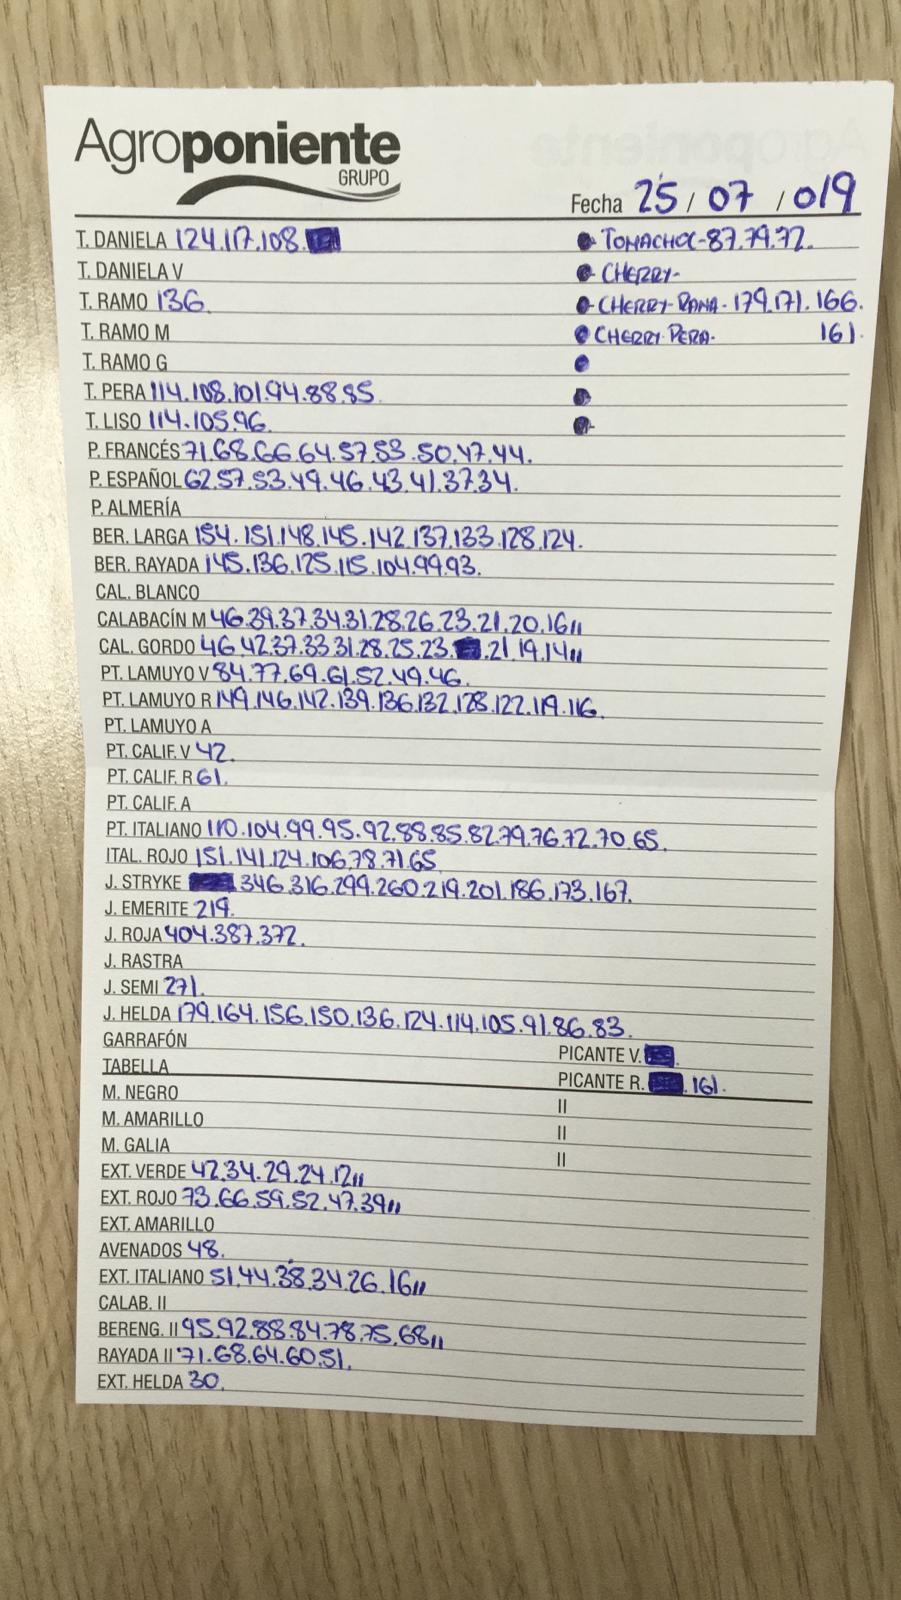 Agroponiente
GRUPO
Fecha 25 / 07 / 019
T. DANIELA 124.117.108. TOMACHOC-87.79.72.
T. DANIELA V CHERRY-
T. RAMO 136. CHERRY-RAMA-179.171.166.
T. RAMO M CHERRY PERA- 161.
T. RAMO G
T. PERA 114.108.101.94.88.85.
T. LISO 114.105.96.
P. FRANCÉS 71.68.66.64.57.53.50.47.44.
P. ESPAÑOL 62.57.53.49.46.43.41.37.34.
P. ALMERÍA
BER. LARGA 154.151.148.145.142.137.133.128.124.
BER. RAYADA 145.136.125.115.104.99.93.
CAL. BLANCO
CALABACÍN M 46.39.37.34.31.28.26.23.21.20.16,,
CAL. GORDO 46.42.37.33.31.28.25.23. .21.19.14,,
PT. LAMUYO V 84.77.69.61.52.49.46.
PT. LAMUYO R 149.146.142.139.136.132.128.122.119.116.
PT. LAMUYO A
PT. CALIF. V 42.
PT. CALIF. R 61.
PT. CALIF. A
PT. ITALIANO 110.104.99.95.92.88.85.82.79.76.72.70.65.
ITAL. ROJO 151.141.124.106.78.71.65.
J. STRYKE 346.316.299.260.219.201.186.173.167.
J. EMERITE 219.
J. ROJA 404.387.372.
J. RASTRA
J. SEMI 271.
J. HELDA 179.164.156.150.136.124.114.105.91.86.83.
GARRAFÓN PICANTE V.
TABELLA PICANTE R. .161.
M. NEGRO II
M. AMARILLO II
M. GALIA II
EXT. VERDE 42.34.29.24.12,,
EXT. ROJO 73.66.59.52.47.39,,
EXT. AMARILLO
AVENADOS 48.
EXT. ITALIANO 51.44.38.34.26.16,,
CALAB. II
BERENG. II 95.92.88.84.78.75.68,,
RAYADA II 71.68.64.60.51.
EXT. HELDA 30.